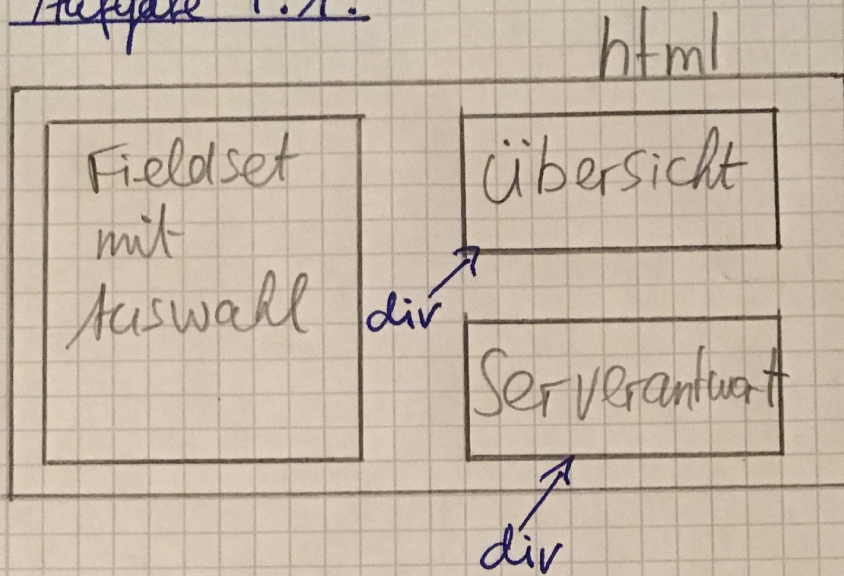 html
Fieldset
mit
Auswahl
Übersicht
div
Serverantwort
div